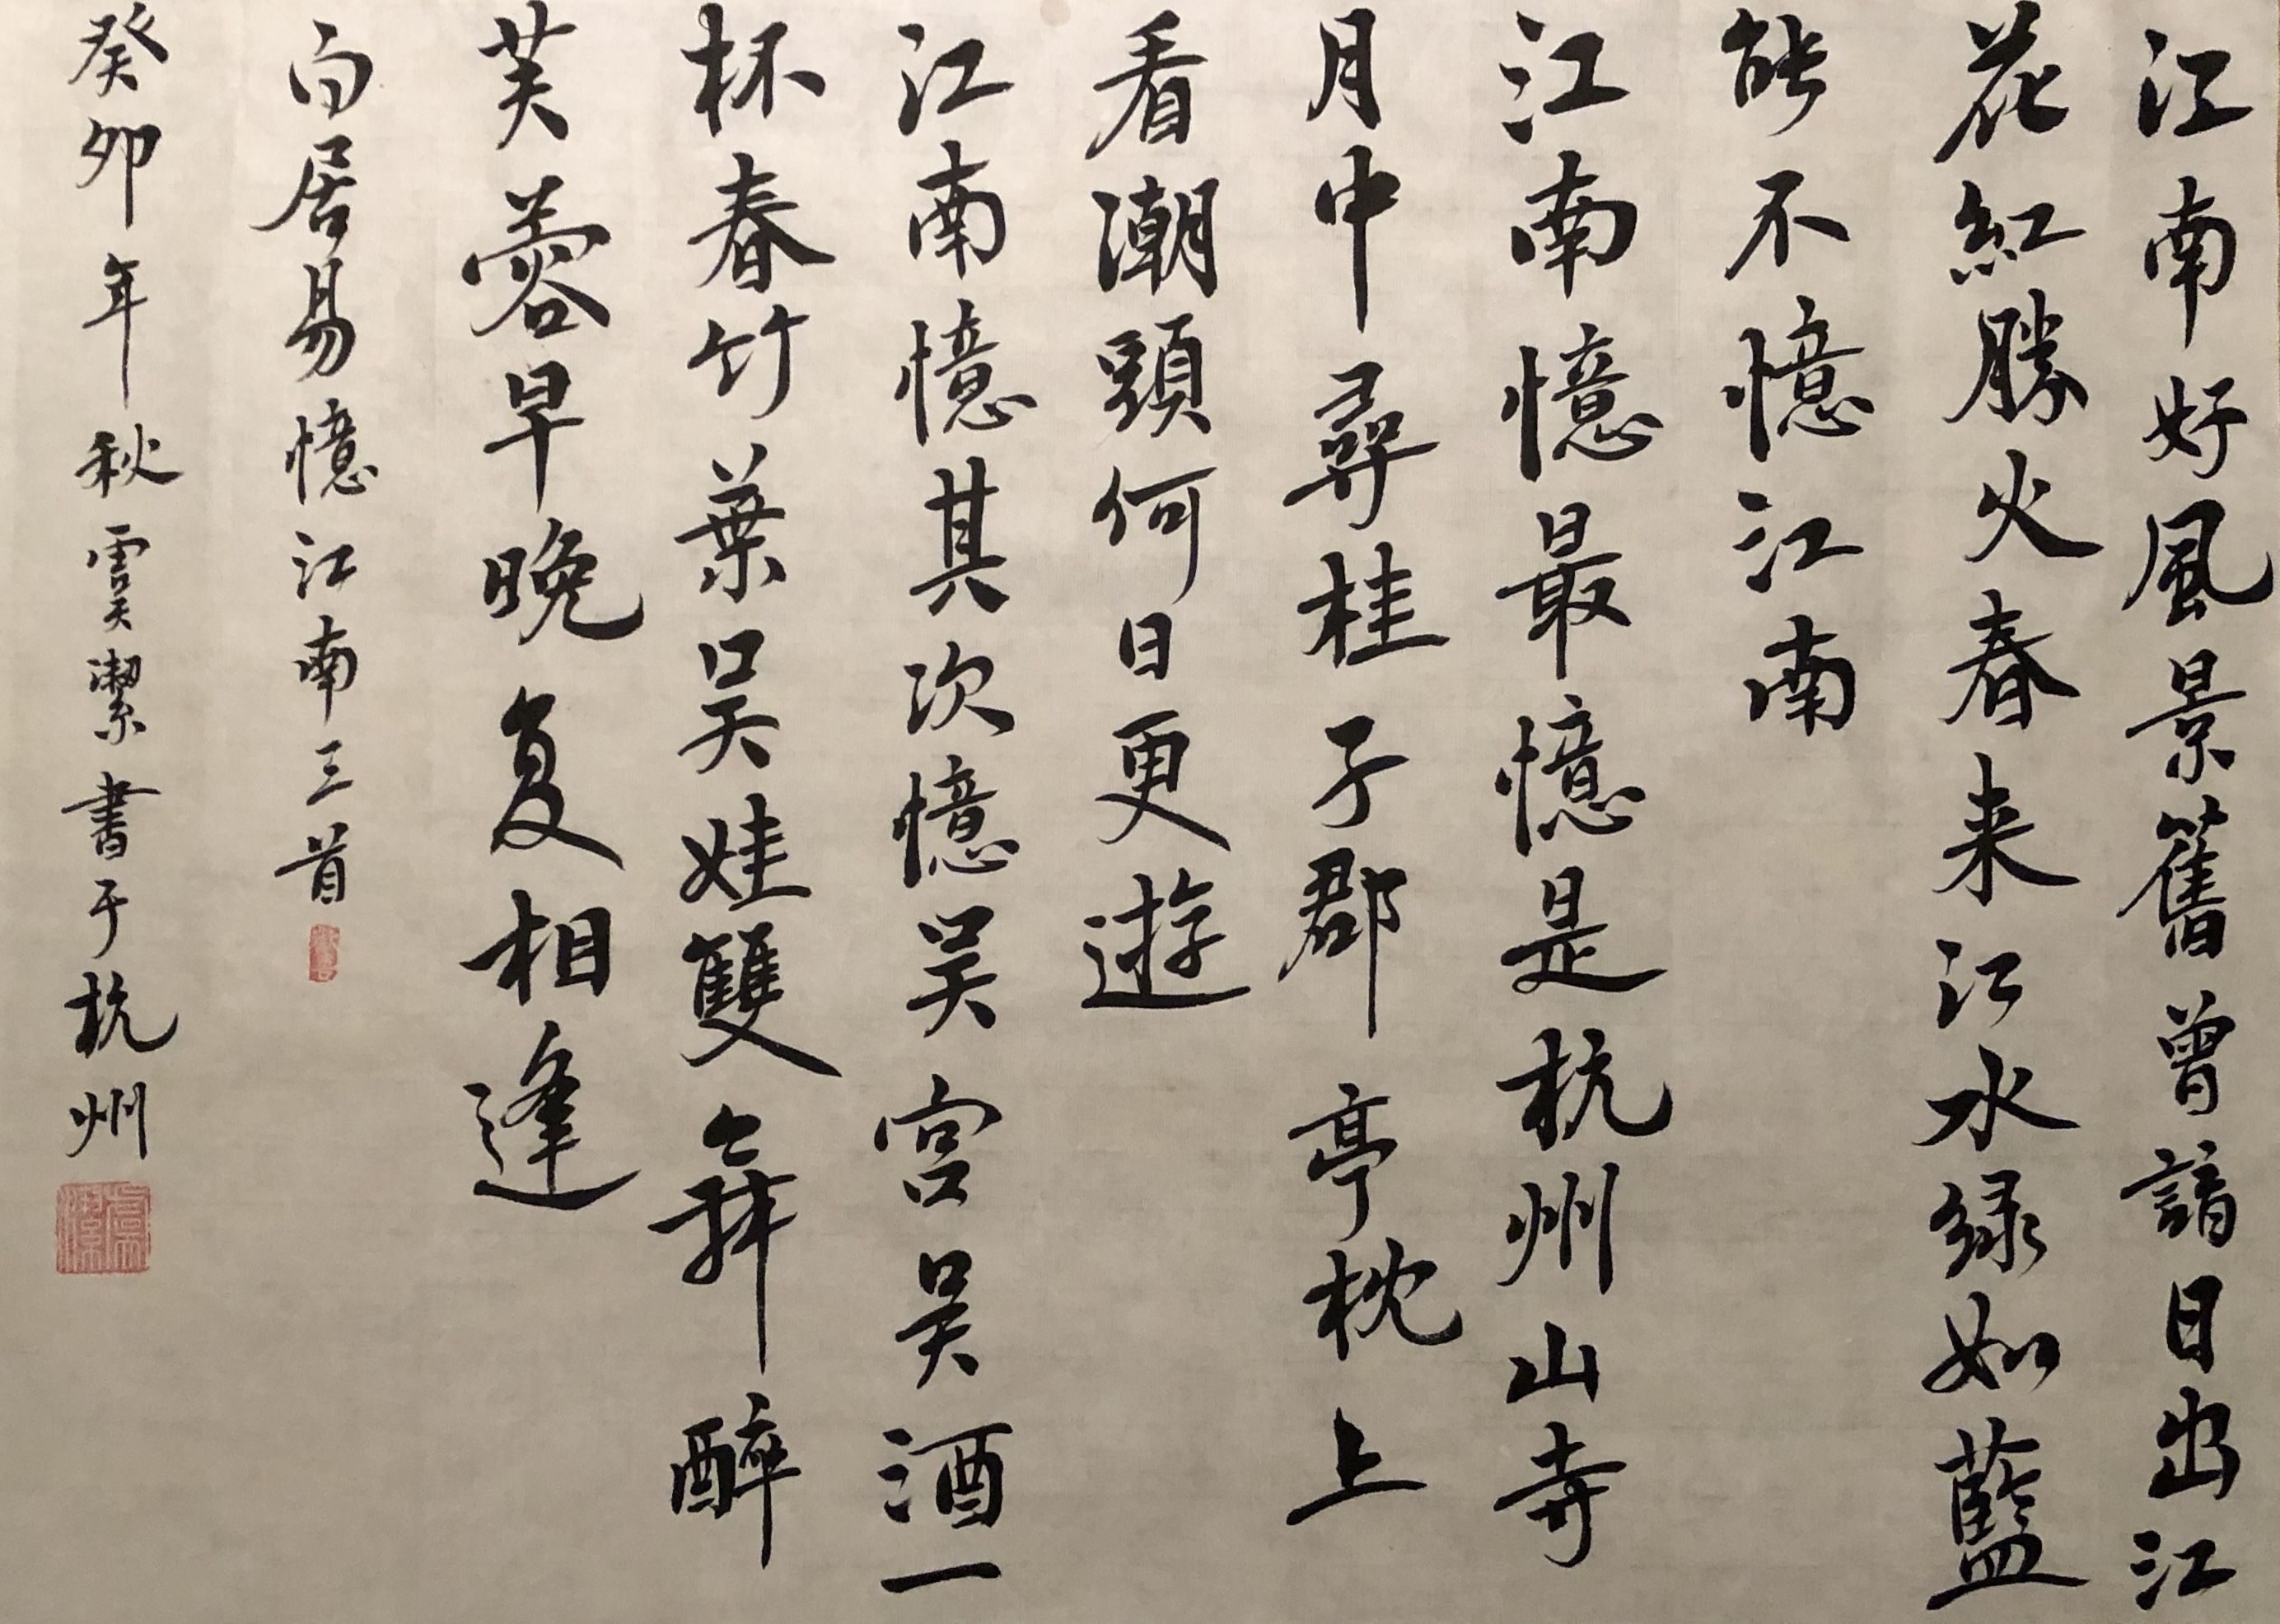 江南好風景舊曾諳日出江
花紅勝火春来江水绿如藍
能不憶江南
江南憶最憶是杭州山寺
月中尋桂子郡亭枕上
看潮頭何日更遊
江南憶其次憶吴宫吴酒一
杯春竹葉吴娃雙舞醉
芙蓉早晚复相逢
白居易憶江南三首
癸卯年秋虞潔書于杭州
虞潔